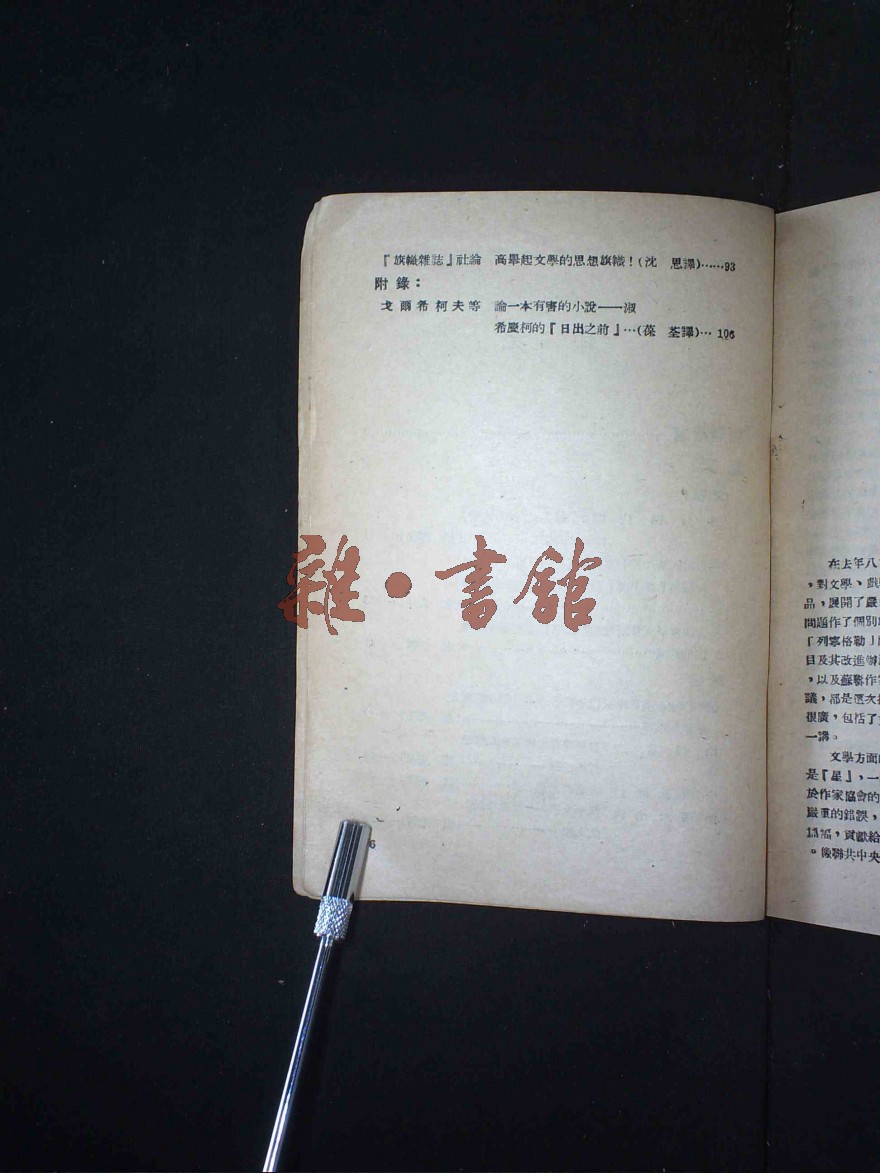 『旗幟雜誌』社論 高舉起文學的思想旗幟！(沈 思譯)……93
附錄：
戈爾希柯夫等 論一本有害的小說——淑
希慶柯的『日出之前』…(葆 荃譯)… 106
6
雜·書館
在去年八
，對文學、戲
品，展開了嚴
問題作了個別
「列寧格勒」
目及其改進辦
，以及蘇聯作家
議，都是這次
很廣，包括了
一講。
文學方面
是『星』，一
於作家協會的
嚴重的錯誤，
貢獻給
。像聯共中央